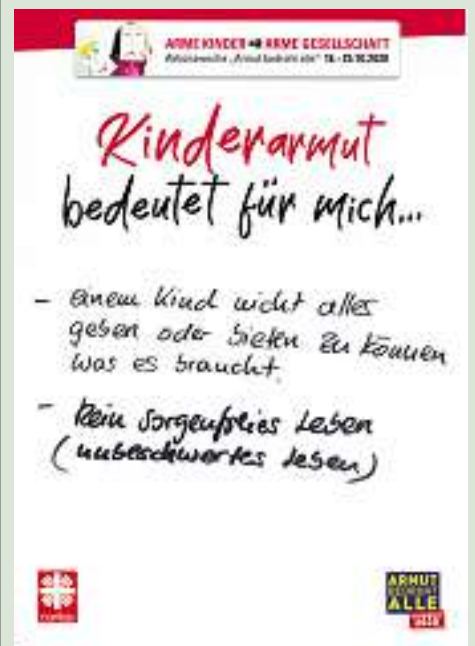 ARME KINDER = ARME GESELLSCHAFT
Aktionswoche „Armut bedroht alle“ 2020
Kinderarmut
bedeutet für mich...
- einem Kind nicht alles
geben oder bieten zu können
was es braucht.
- kein sorgenfreies Leben
(unbeschwertes Leben)
Caritas
ARMUT
BEDROHT
ALLE